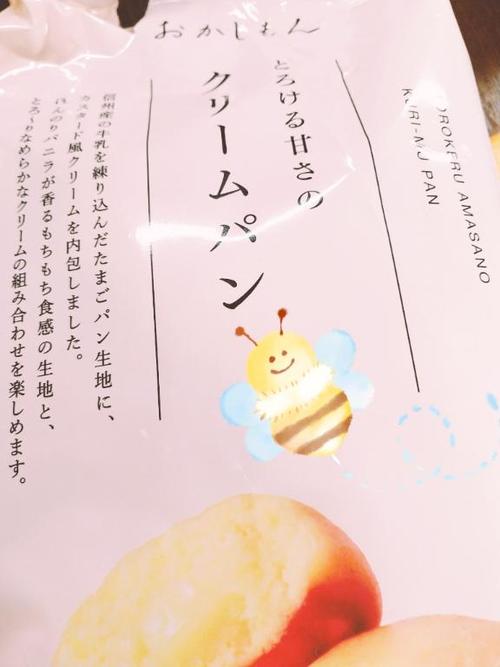 おかしもん
とろける甘さの
クリームパン
TOROKERU AMASANO
KURI-MU PAN
信州産の牛乳を練り込んだたまごパン生地に、
カスタード風クリームを内包しました。
ほんのりバニラが香るもちもち食感の生地と、
とろ〜りなめらかなクリームの組み合わせを楽しめます。